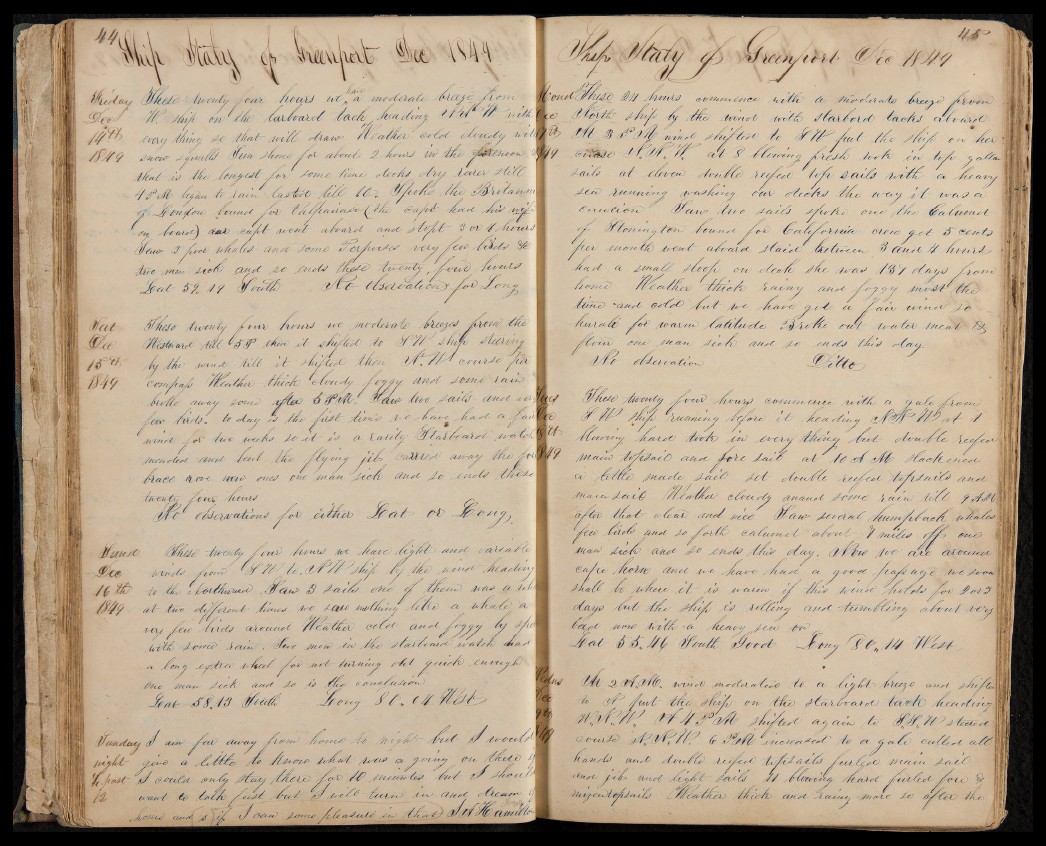 44 Ship Italy of Greenport Dec 1849
Friday These twenty four hours we have a moderate breeze from
Dec W ship on the larboard tack heading with
14th every thing so that will draw Weather cold cloudy with
1849 snow squalls Sun shone for about 2 hours in the forenoon
that is the longest for some time decks dry
4 P.M. began to rain lasted till 10. Spoke the
of London bound for (the capt had his wife
on board) our capt went aboard and stopt 3 or 4 hours
Saw 3 fine whales and some Porpoises very few birds &c
two men sick and so ends these twenty four hours
Lat 59.19 South No observation for Long
Sat These twenty four hours we moderate breezes from the
Dec Westward till 5 P. then it shifted to S W ship steering
15th by the wind till it shifted then N. W course per
1849 compass Weather thick cloudy foggy and some rain
broke away some after 5 P.M. Saw two sails and very
few birds. to day is the first time we have had a fair
wind for two weeks so it is a rarity Starboard watch
mended and bent the flying jib carried away the fore
brace rove new ones one man sick and so ends these
twenty four hours
No observations for either Lat or Long,
Sund These twenty four hours we have light and variable
Dec winds from S W to N W ship by the wind heading
16th to the Northward Saw 3 sails one of them was a
1849 at two different times we saw nothing like a whale a
very few birds around Weather cold and foggy by
with some rain. Two men in the starboard watch had
a long extra wheel for not turning out quick enough
one man sick and so is the conclusion
Lat 58.13 South Long 80.04 West
Sunday I am far away from home to night but I would
night give a little to know what was a going on there
½ past I could only stay there for 10 minutes but I should
12 want to talk fast but I will turn in and dream of
home and if I can some pleasure in that
45
Ship Italy of Greenport Dec 1849
Mond These 24 hours commence with a moderate breeze from
Dec North ship by the wind with starbord tacks aboard
17th At 3 P M wind shifted to S W put the ship on her
1849 course N.N.W. at 8 blowing fresh took in top gallan
sails at eleven double reefed top sails with a heavy
sea running washing our decks the way it was a
caution Saw two sails spoke one the Calumet
of Stonington bound for California crew got 5 cents
per month went aboard staid between 3 and 4 hours
had a small sloop on deck she was 139 days from
home Weather thick rainy and foggy most the
time and cold but we have got a fair wind so
hurrah for warm latitude Broke out water meat &
flour one man sick and so ends this day
No observation Ditto
Tues These twenty four hours commence with a gale from
Dec S W ship running before it heading N N W at 1
18th blowing hard took in every thing but double reefed
1849 main topsail and fore sail at 10 A M slackened
a little made sail set double reefed topsails and
main sail Weather cloudy anand some rain till 9 A.M
after that clear and nice Saw several humpback whales
few birds and so forth calumet about 8 miles off one
man sick and so ends this day. Now we are around
cape horn and we have had a good passage we soon
shall be where it is warm if this wind holds for 2 or 3
days but the ship is rolling and tumbling about very
bad now with a heavy sea on
Lat 55.46 South Good Long 80.14 West
Wednes At 2 A.M. wind moderated to a light breeze and shifted
Dec to N put the ship on the starboard tack heading
19th W.N.W. At 4 P M shifted again to S.S.W steered
1849 course N.N.W. 6 P.M increased to a gale called all
hands and double reefed topsails furled main sail
and jibs and light sails blowing hard furled fore &
mizentopsails Weather thick and rainy more so after the